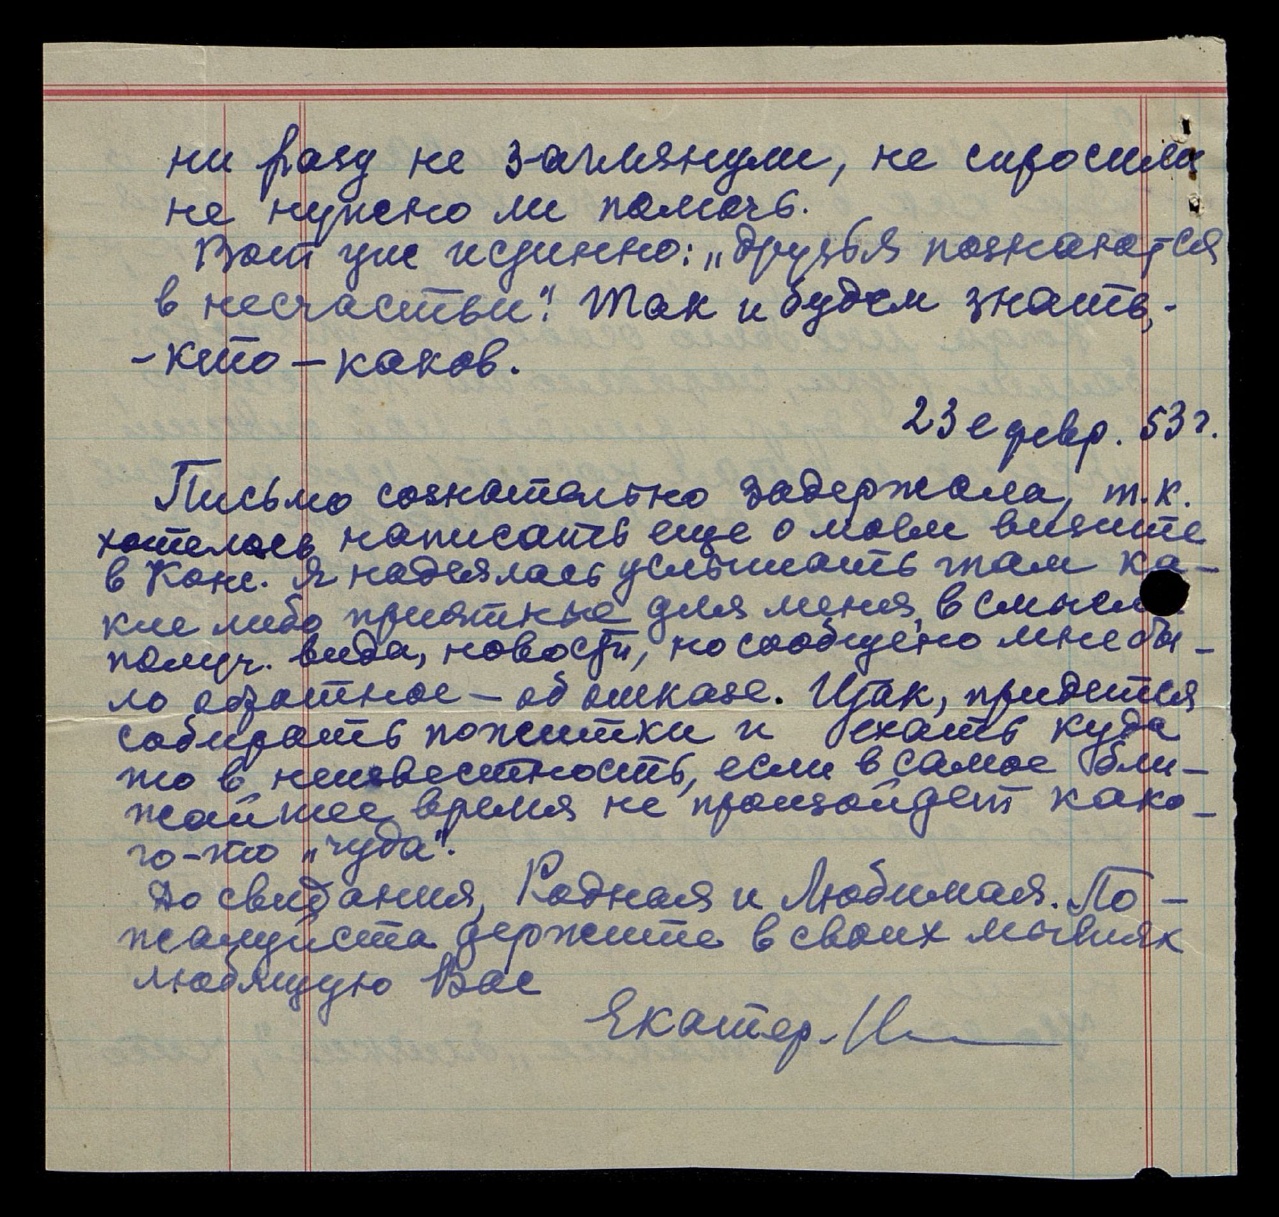 ни разу не заглянули, не спросили
не нужно ли помочь.
Вот уж истинно: „друзья познаются
в несчастьи“! Так и будем знать, -
- кто – каков.
23 е февр. 53 г.
Письмо сознательно задержала, т.к.
хотелось написать еще о моем визите
в Конс. Я надеялась услышать там ка-
кие либо приятные для меня, в смысле
получ. вида, новости, но сообщено мне бы-
ло обратное – об отказе. Итак, придется
собирать пожитки и ехать куда
то в неизвестность, если в самое бли-
жайшее время не произойдет како-
го-то „чуда“.
До свидания, Родная и Любимая. По-
жалуйста держите в своих мыслях
любящую Вас
Екатер.